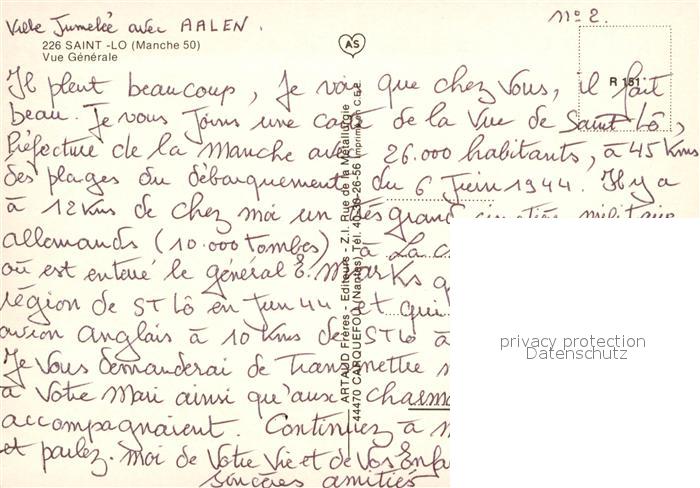 Ville Jumelée avec AALEN.
n° 2.
226 SAINT -LO (Manche 50)
Vue Générale
AS
R 151
Il pleut beaucoup, je vois que chez vous, il fait
beau. Je vous joins une carte de la vue de Saint Lô,
Préfecture de la Manche avec 26.000 habitants, à 45 Kms
des plages du débarquement du 6 juin 1944. Il y a
à 12 Kms de chez moi un très grand cimetière militaire
allemands (10.000 tombes) à La C
où est enterré le général E. Marks q
région de ST Lô en Juin 44 et qui
avion anglais à 10 Kms de ST Lô à
Je vous demanderai de transmettre m
à votre mari ainsi qu'aux charma
accompagnaient. Continuez à m
et parlez-moi de votre vie et de vos enfa
sincères amitiés
ARTAUD Frères - Editeurs - Z.I. Rue de la Métallurgie
44470 CARQUEFOU (Nantes) Tél. 40-30-26-56 Imprimé en C.E.E.
privacy protection
Datenschutz